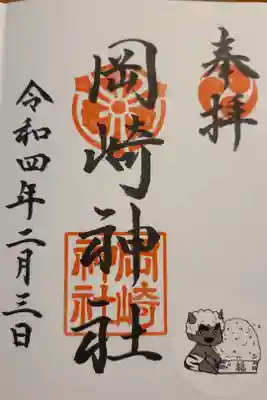 奉拝
岡崎神社
岡崎
神社
令和四年二月三日
福